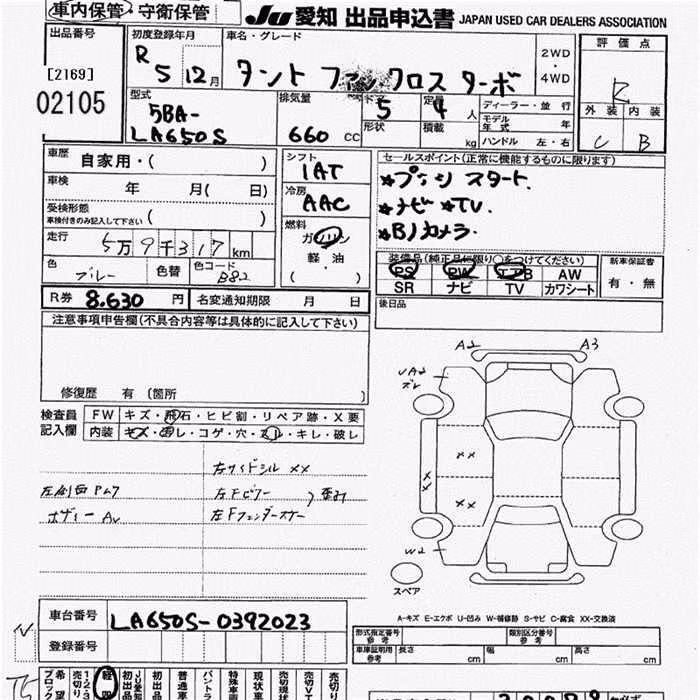 車内保管・守衛保管
JU 愛知 出品申込書 JAPAN USED CAR DEALERS ASSOCIATION
出品番号
[2169]
02105
初度登録年月
R 5 12月
車名・グレード
タント ファンクロス ターボ
2WD
・
4WD
評価点
R
外装 内装
C B
型式
5BA-
LA650S
排気量
660 CC
ドア
5
形状
定員
4 人
積載 kg
ディーラー・並行
モデル年式 年
ハンドル 左・右
車歴 自家用・( )
車検 年 月( 日)
受検形態
車検付きのみ記入して下さい ( )
走行 5万9千317km
色 ブルー 色替 色コード B82
シフト
IAT
冷房
AAC
燃料
ガソリン
軽油
( )
セールスポイント(正常に機能するものに限ります)
★プッシュスタート.
★ナビ★TV.
★Bカメラ.
装備品(純正品に限り○をつけてください)
PS PW エアB AW
SR ナビ TV カワシート
新車保証書
有・無
R券 8.630 円 名変通知期限 月 日
後日品
注意事項申告欄(不具合内容等は具体的に記入して下さい)
修復歴 有 (箇所 )
検査員
記入欄
FW キズ・飛石・ヒビ割・リペア跡・X要
内装 キズ・汚レ・コゲ・穴・ヌレ・キレ・破レ
右サイドシル XX
左側面 Pムラ 左Fピラー 歪み
ボディー Av 左Fフェンダーステー
A2 A3
UA2
ズレ
XX
XX
XX
W2
スペア
A-キズ E-エクボ U-凹み W-補修跡 S-サビ C-腐食 XX-交換済
車台番号 LA650S-0392023
登録番号
型式指定番号
参考
類別区分番号
参考
車庫証明用
参考
長さ cm 幅 cm 高さ cm